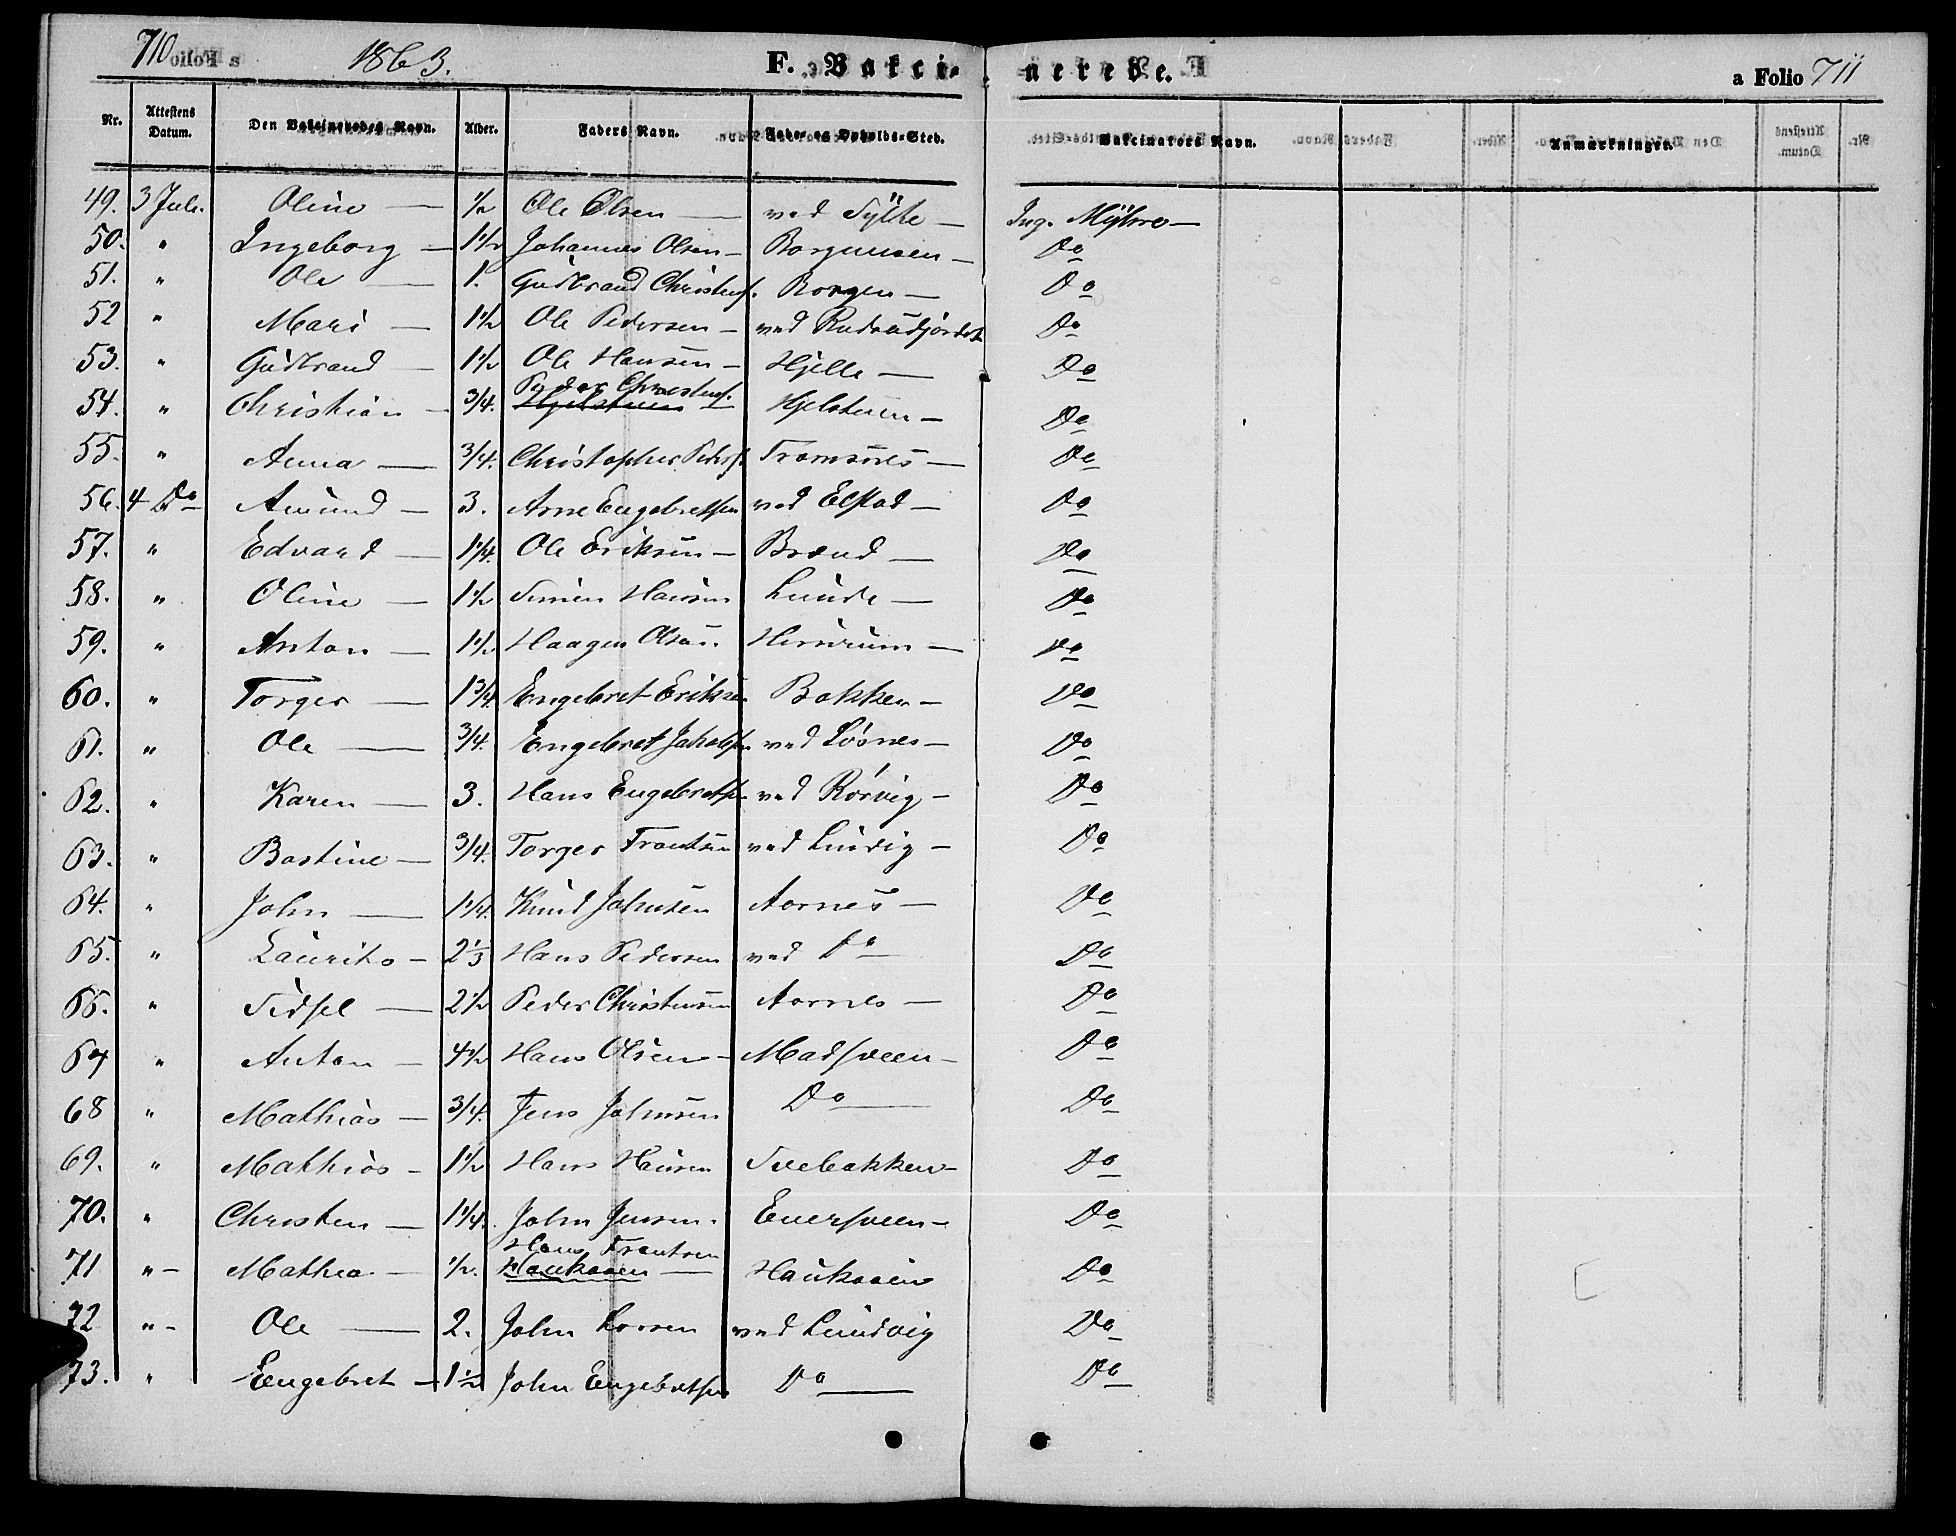 710 1863. F. Vakci- nerede. a Folio 711
Nr. Attestens Datum. Den Vakcineredes Navn. Alder. Faders Navn. Føde- og Opholds-Sted. Vakcinators Navn. Anmærkninger.
49. 3 Juli. Oline — ½ Ole Olsen — ved Sylte — Ing. Myhre —
50. " Ingeborg — 1½ Johannes Olsen — Do
51. " Ole — 1. Gudbrand Christens. Borgen — Do
52 " Mari — 1½ Ole Pedersen — ved Do
53. " Gudbrand — 1½ Ole Hansen — Hjelle — Do
54. " Christian — 3/4. Peder Christens. Hjelstuen — Do
55. " Anna — 3/4. Christopher Peders. Tromsnes — Do
56. 4 Do Amund — 3. Arne Engebretsen ved Elstad — Do
57. " Edvard — 1¼. Ole Eriksen — Brænd — Do
58. " Oline — 1½ Simen Hansen Lunde — Do
59. " Anton — 1½ Haagen Olsen. — Do
60. " Torger — 1¾ Engebret Eriksen Bakken — Do
61. " Ole — 3/4. Engebret Jakobsen ved Løsnes — Do
62. " Karen — 3. Hans Engebretsen ved Rørvig — Do
63. " Bastine — 3/4. Torger Frantsen ved — Do
64. " John — 1¼. Knud Johnsen Aarnes — Do
65. " Laurits — 2⅓ Hans Pedersen ved Do — Do
66. " Sidsel — 2½ Peder Christensen Aarnes — Do
67 " Anton — 4½ Hans Olsen — Madsveen — Do
68 " Mathias — 3/4. Jens Johnsen Do — Do
69. " Mathias — 1½ Hans Hansen Svebakken — Do
70. " Christen — 1¼. John Jensen. Enersveen — Do
71 " — Mathea — ½. Hans Frantsen Haukaaen — Haukaaen Do
72 " — Ole — 2. John Larsen ved Lundvig Do
73. " Engebret — 1½ John Engebretsen Do — Do